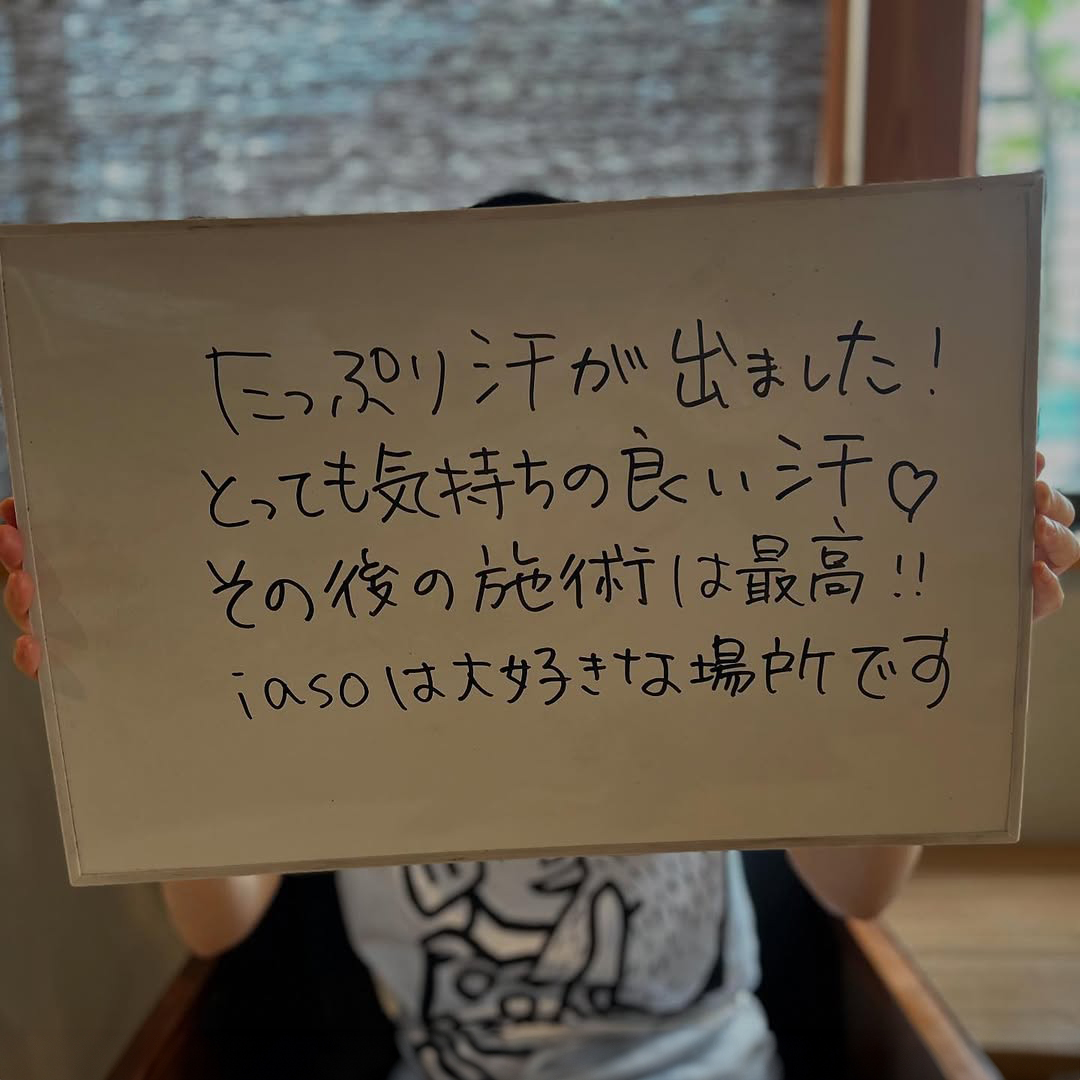 たっぷり汗が出ました!
とっても気持ちの良い汗♡
その後の施術は最高!!
iasoは大好きな場所です